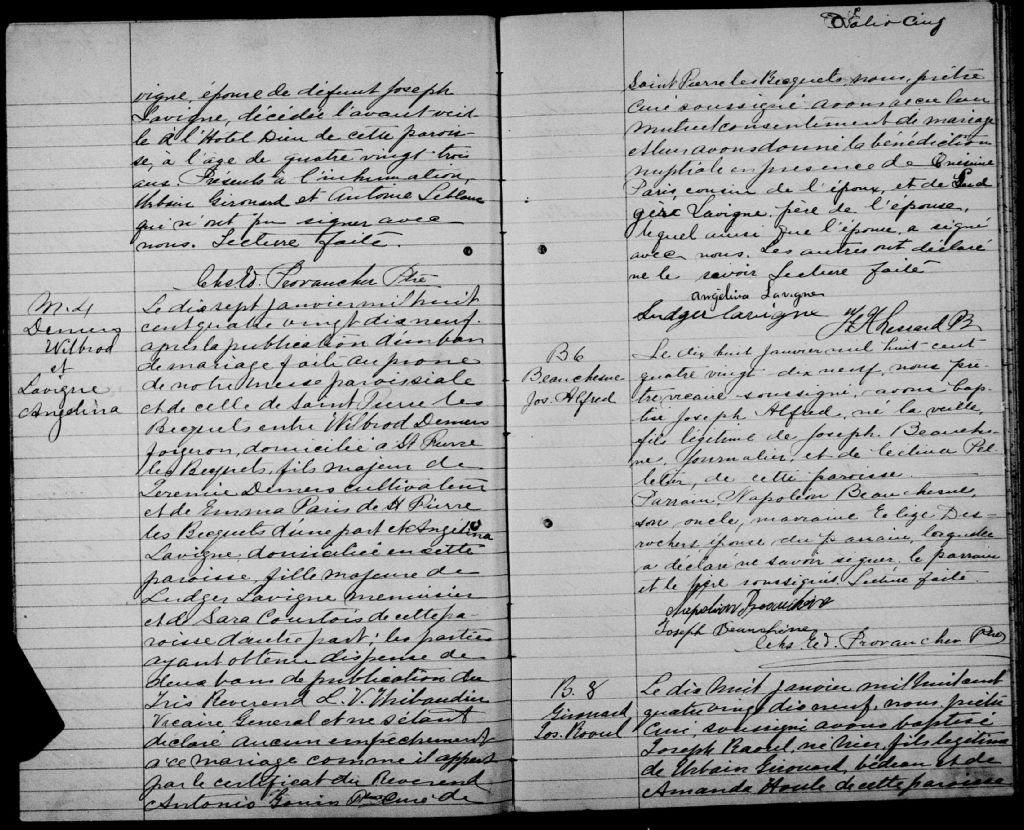 vigne, épouse de défunt Joseph
Lavigne, décédée l'avant veil-
le à l'Hotel Dieu de cette parois-
se, a l'age de quatre vingt trois
ans. Présents à l'inhumation,
Urbain Girouard et Antoine Leblanc
qui n'ont pu signer avec
nous. Lecture faite.
Chs Ed. Provancher Ptre
M. 4
Demers
Wilbrod
et
Lavigne
Angelina
Le dix sept janvier mil huit
cent quatre vingt dix neuf.
après la publication d'un ban
de mariage faite au prone
de notre messe paroissiale
et de celle de Saint Pierre les
Becquets entre Wilbrod Demers
forgeron, domicilié à St Pierre
les Becquets, fils majeur de
Jeremie Demers cultivateur
et de Emma Paris de St Pierre
les Becquets d'une part et Angelina
Lavigne domiciliée en cette
paroisse, fille majeure de
Ludger Lavigne menuisier
et de Sara Courtois de cette pa-
roisse d'autre part: les parties
ayant obtenu dispense de
deux bans de publication du
Très Reverend L. V. Thibaudier
Vicaire General et ne s'étant
déclaré aucun empêchement
à ce mariage comme il appert
par le certificat du Reverend
Antonio Genin Ptre Curé de
Folio Cinq
Saint Pierre les Becquets, nous, prêtre
Curé soussigné avons recu leur
mutuel consentement de mariage
et leur avons donné la bénédiction
nuptiale en presence de Onesime
Paris cousin de l'époux, et de Lud
ger Lavigne, père de l'épouse,
lequel ainsi que l'épouse, a signé
avec nous. Les autres ont déclaré
ne le savoir Lecture faite
Angelina Lavigne
Ludger Lavigne
Lessard P
B 6
Beauchesne
Jos. Alfred
Le dix huit janvier mil huit cent
quatre vingt dix neuf, nous prê-
tre vicaire soussigné, avons bap-
tisé Joseph Alfred, né la veille,
fils légitime de Joseph Beauches-
ne, journalier et de Lectina Pel-
letier, de cette paroisse.
Parrain, Napoléon Beauchesne,
son oncle, marraine Eelige Des-
rochers épouse du parrain, laquelle
a déclaré ne savoir signer, le parrain
et le père soussignés. Lecture faite.
Napoléon Beauchene
Joseph Beauchène
Chs. Ed. Provancher Ptre
B. 8
Girouard
Jos. Raoul
Le dix huit janvier mil huit cent
quatre vingt dix neuf, nous, prêtre
Curé, soussigné avons baptisé
Joseph Raoul né hier, fils legitime
de Urbain Girouard, bedeau et de
Amanda Houle de cette paroisse